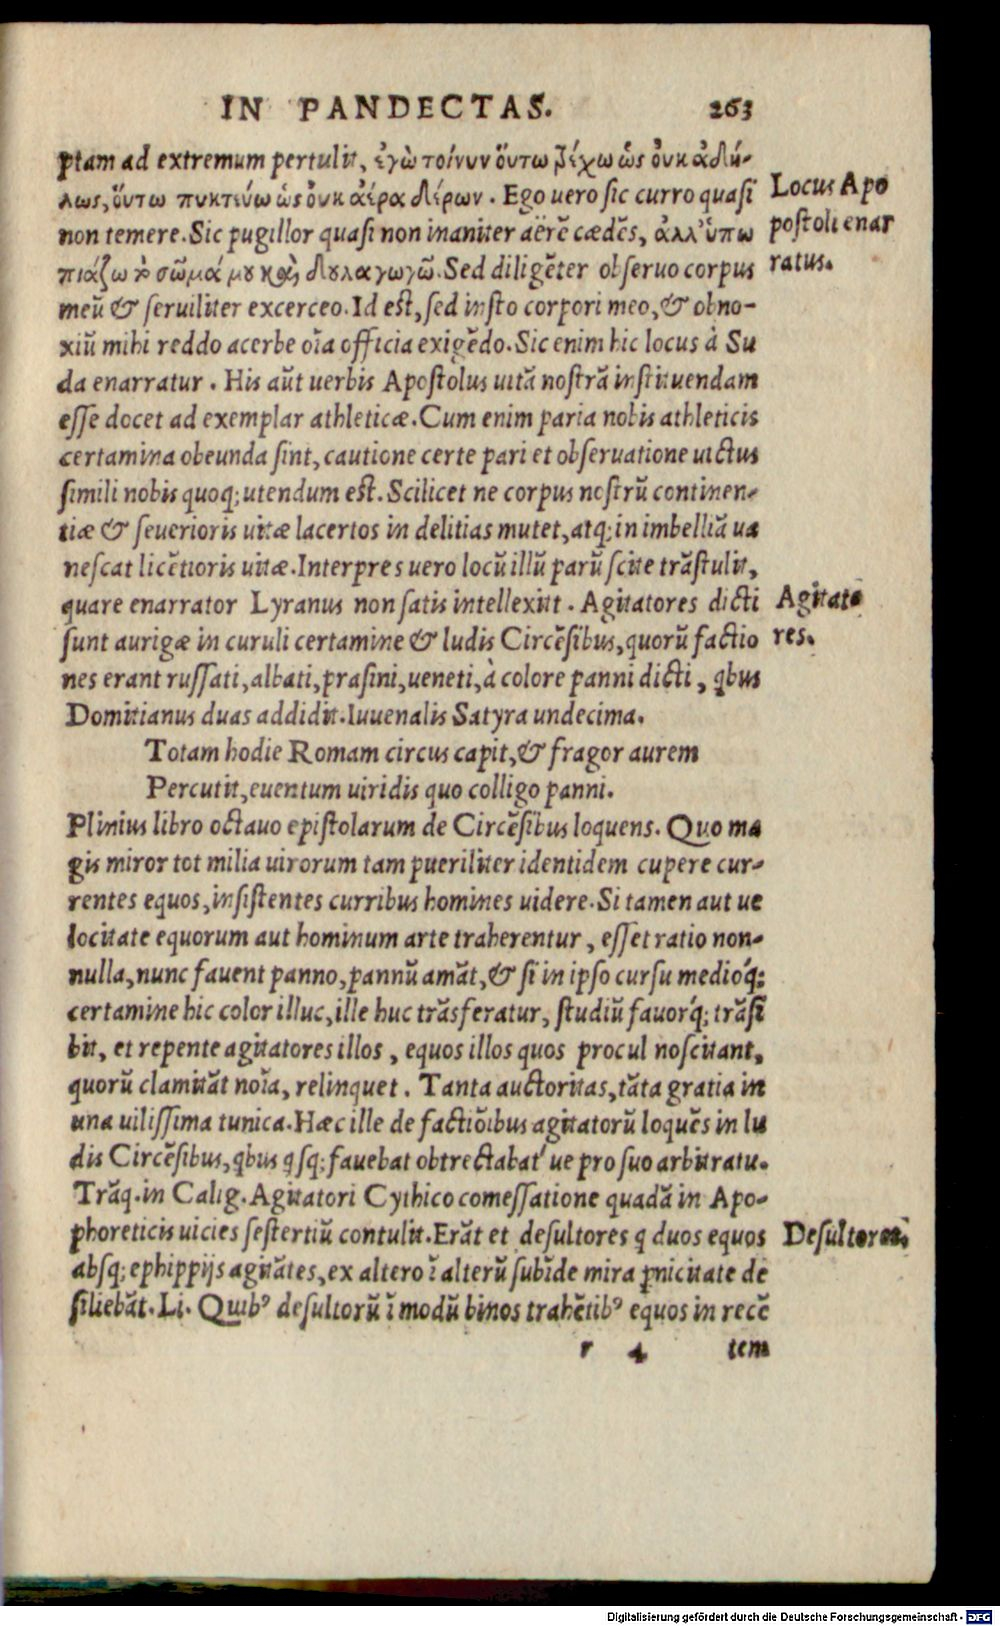 IN PANDECTAS. 263
ptam ad extremum pertulit, ἐγὼ τοίνυν ὅυτω τρέχω ὡς ὀυκ ἀδή-
λως, ὅυτω πυκτεύω ὡς ὀυκ ἀέρα δέρων. Ego uero sic curro quasi
non temere. Sic pugillor quasi non inaniter aërē cædēs, ἀλλ' ὑπω
πιάζω τὸ σῶμά μου καὶ δουλαγωγῶ. Sed diligēter obseruo corpus
meū & seruiliter excerceo. Id est, sed insto corpori meo, & obno-
xiū mihi reddo acerbe oīa officia exigēdo. Sic enim hic locus à Su
da enarratur. His aūt uerbis Apostolus uitā nostrā instituendam
esse docet ad exemplar athleticæ. Cum enim paria nobis athleticis
certamina obeunda sint, cautione certe pari et obseruatione uictus
simili nobis quoq; utendum est. Scilicet ne corpus nostrū continen-
tiæ & seuerioris uitæ lacertos in delitias mutet, atq; in imbelliā ua
nescat licētioris uitæ. Interpres uero locū illū parū scite trāstulit,
quare enarrator Lyranus non satis intellexit. Agitatores dicti
sunt aurigæ in curuli certamine & ludis Circēsibus, quorū factio
nes erant russati, albati, prasini, ueneti, à colore panni dicti, qbus
Domitianus duas addidit. Iuuenalis Satyra undecima.
Totam hodie Romam circus capit, & fragor aurem
Percutit, euentum uiridis quo colligo panni.
Plinius libro octauo epistolarum de Circēsibus loquens. Quo ma
gis miror tot milia uirorum tam pueriliter identidem cupere cur-
rentes equos, insistentes curribus homines uidere. Si tamen aut ue
locitate equorum aut hominum arte traherentur, esset ratio non-
nulla, nunc fauent panno, pannū amāt, & si in ipso cursu medióq;
certamine hic color illuc, ille huc trāsferatur, studiū fauorq́; trāsi
bit, et repente agitatores illos, equos illos quos procul noscitant,
quorū clamitāt noīa, relinquet. Tanta auctoritas, tāta gratia in
una uilissima tunica. Hæc ille de factiōibus agitatorū loquēs in lu
dis Circēsibus, qbus qsq; fauebat obtrectabat'ue pro suo arbitratu.
Trāq. in Calig. Agitatori Cythico comessatione quadā in Apo-
phoreticis uicies sestertiū contulit. Erāt et desultores q duos equos
absq; ephippijs agitātes, ex altero ī alterū subīde mira ꝑnicitate de
siliebāt. Li. Quibꝰ desultorū ī modū binos trahētibꝰ equos in recē
r 4 tem
Locus Apo
postoli enar
ratus.
Agitato
res.
Desultores.
Digitalisierung gefördert durch die Deutsche Forschungsgemeinschaft - DFG